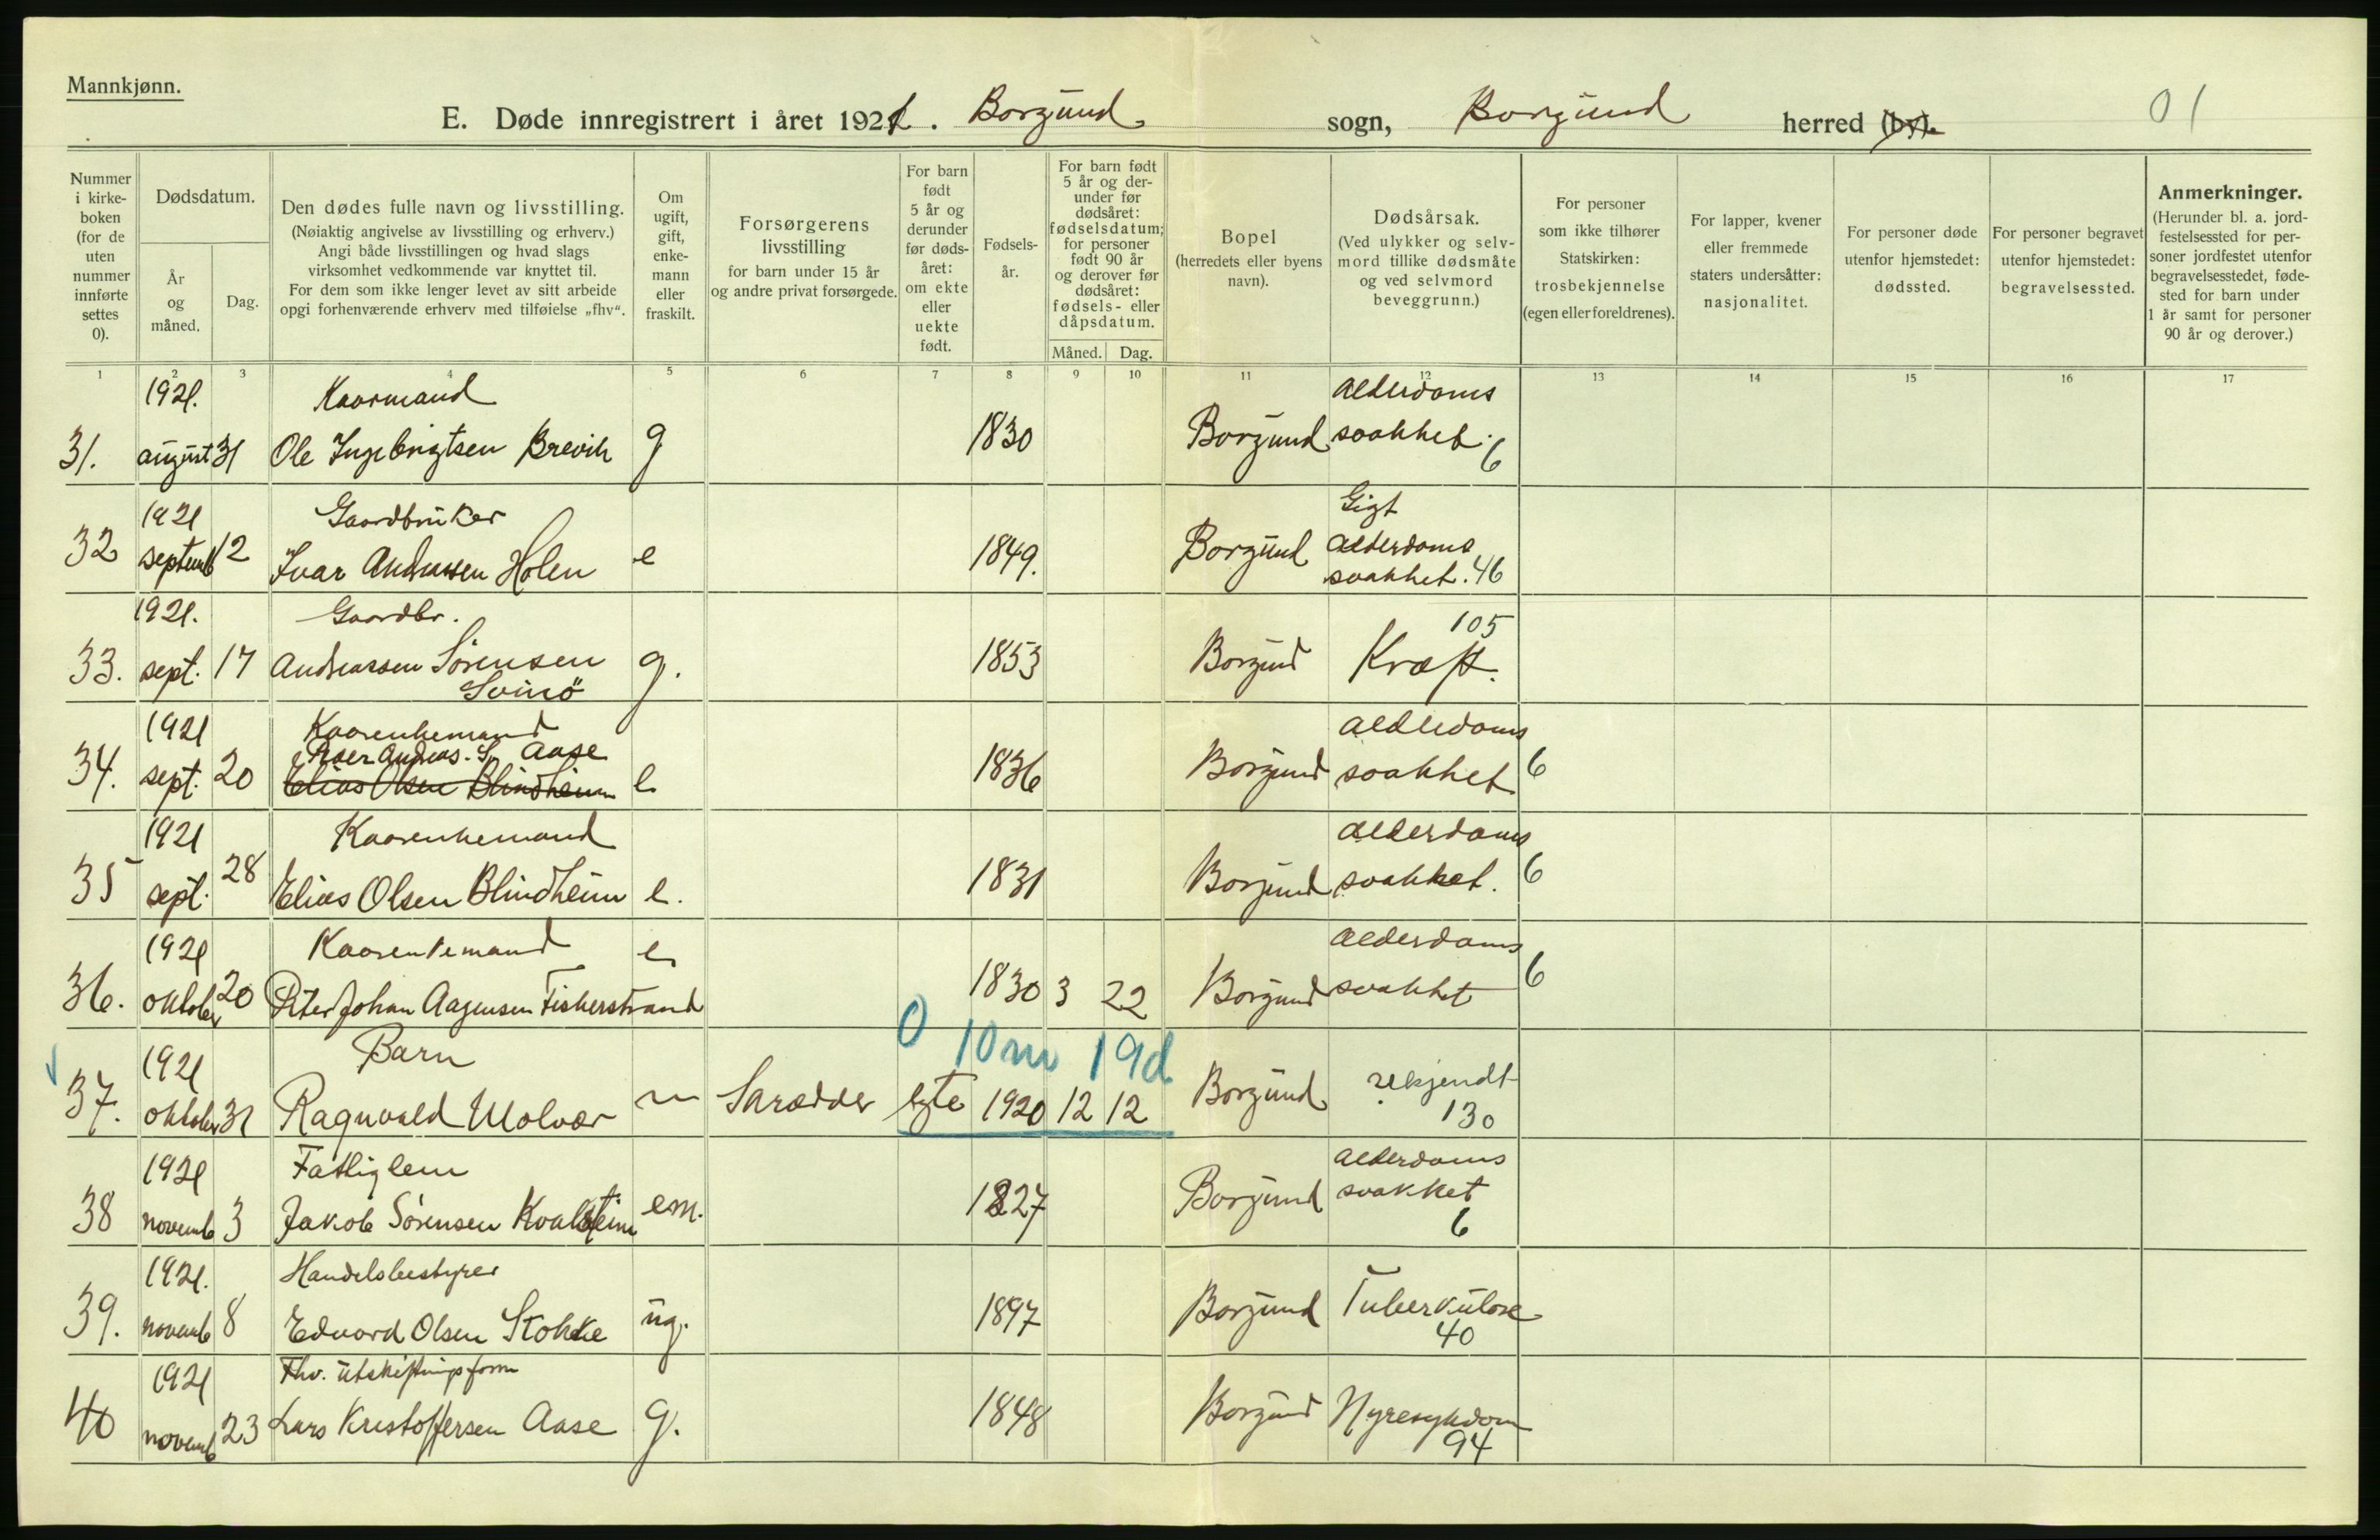 Mannkjønn.
E. Døde innregistrert i året 1921. Borgund sogn, Borgund herred (by).
01
Nummer i kirkeboken (for de uten nummer innførte settes 0).
Dødsdatum.
År og måned.
Dag.
Den dødes fulle navn og livsstilling.
(Nøiaktig angivelse av livsstilling og erhverv.)
Angi både livsstillingen og hvad slags
virksomhet vedkommende var knyttet til.
For dem som ikke lenger levet av sitt arbeide
opgi forhenværende erhverv med tilføielse „fhv“.
Om ugift, gift, enkemann eller fraskilt.
Forsørgerens livsstilling
for barn under 15 år
og andre privat forsørgede.
For barn født 5 år og derunder før dødsåret: om ekte eller uekte født.
Fødselsår.
For barn født 5 år og derunder før dødsåret: fødselsdatum; for personer født 90 år og derover før dødsåret: fødsels- eller dåpsdatum.
Måned. Dag.
Bopel
(herredets eller byens navn).
Dødsårsak.
(Ved ulykker og selvmord tillike dødsmåte og ved selvmord beveggrunn.)
For personer som ikke tilhører Statskirken: trosbekjennelse (egen eller foreldrenes).
For lapper, kvener eller fremmede staters undersåtter: nasjonalitet.
For personer døde utenfor hjemstedet: dødssted.
For personer begravet utenfor hjemstedet: begravelsessted.
Anmerkninger.
(Herunder bl. a. jordfestelsessted for personer jordfestet utenfor begravelsesstedet, fødested for barn under 1 år samt for personer 90 år og derover.)
1 2 3 4 5 6 7 8 9 10 11 12 13 14 15 16 17
1921. Kaarmand alderdoms
31. august 31 Ole Ingebrigtsen Brevik g 1830 Borgund svakhet. 6
1921 Gaardbruker Gigt
32 septemb 12 Ivar Andreassen Holen e 1849. Borgund alderdoms
svakhet. 46
1921. Gaardbr. 105
33. sept. 17 Andreassen Sørensen g. 1853 Borgund Kræft.
Svinö
1921 Kaarenkemand alderdoms
Peer Andreas. S. Aase
34. sept. 20 Elias Olsen Blindheim e 1836 Borgund svakhet 6
1921 Kaarenkemand alderdoms
35 sept. 28 Elias Olsen Blindheim e. 1831 Borgund svakhet. 6
1921 Kaarenkemand e alderdoms
36. oktober 20 Peter Johan Aagensen Fiskerstrand 1830 3 22 Borgund svakhet 6
0 10m 19d
1921 Barn
37. oktober 31 Ragnvald Molvær Skrædder egte 1920 12 12 Borgund ukjendt
130
1921 Fattiglem alderdoms
38 novemb 3 Jakob Sørensen Kvalsteim em. 1827 Borgund svakket
6
1921. Handelsbestyrer
39. novemb 8 Edvard Olsen Stokke ug. 1897 Borgund Tuberkulose
40
1921 Fhv. utskiftingsform
40 novemb 23 Lars Kristoffersen Aase g. 1848 Borgund Nyresykdom
94